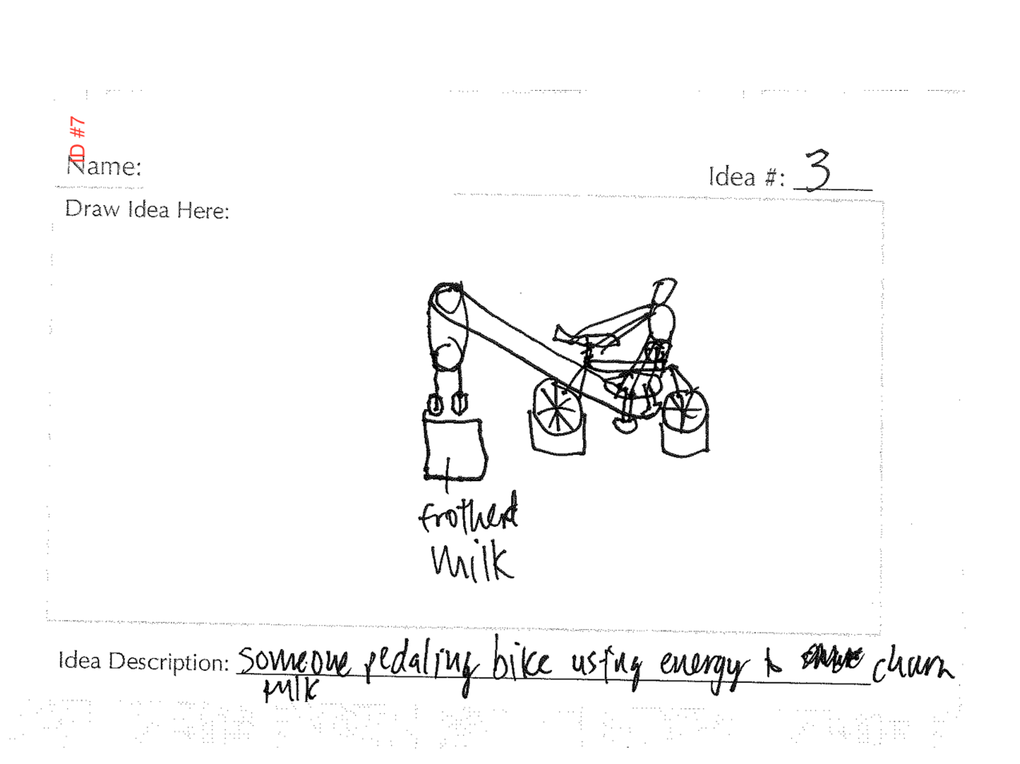 ID #7
Name:
Idea #: 3
Draw Idea Here:
frothed
milk
Idea Description: someone pedaling bike using energy to churn
milk